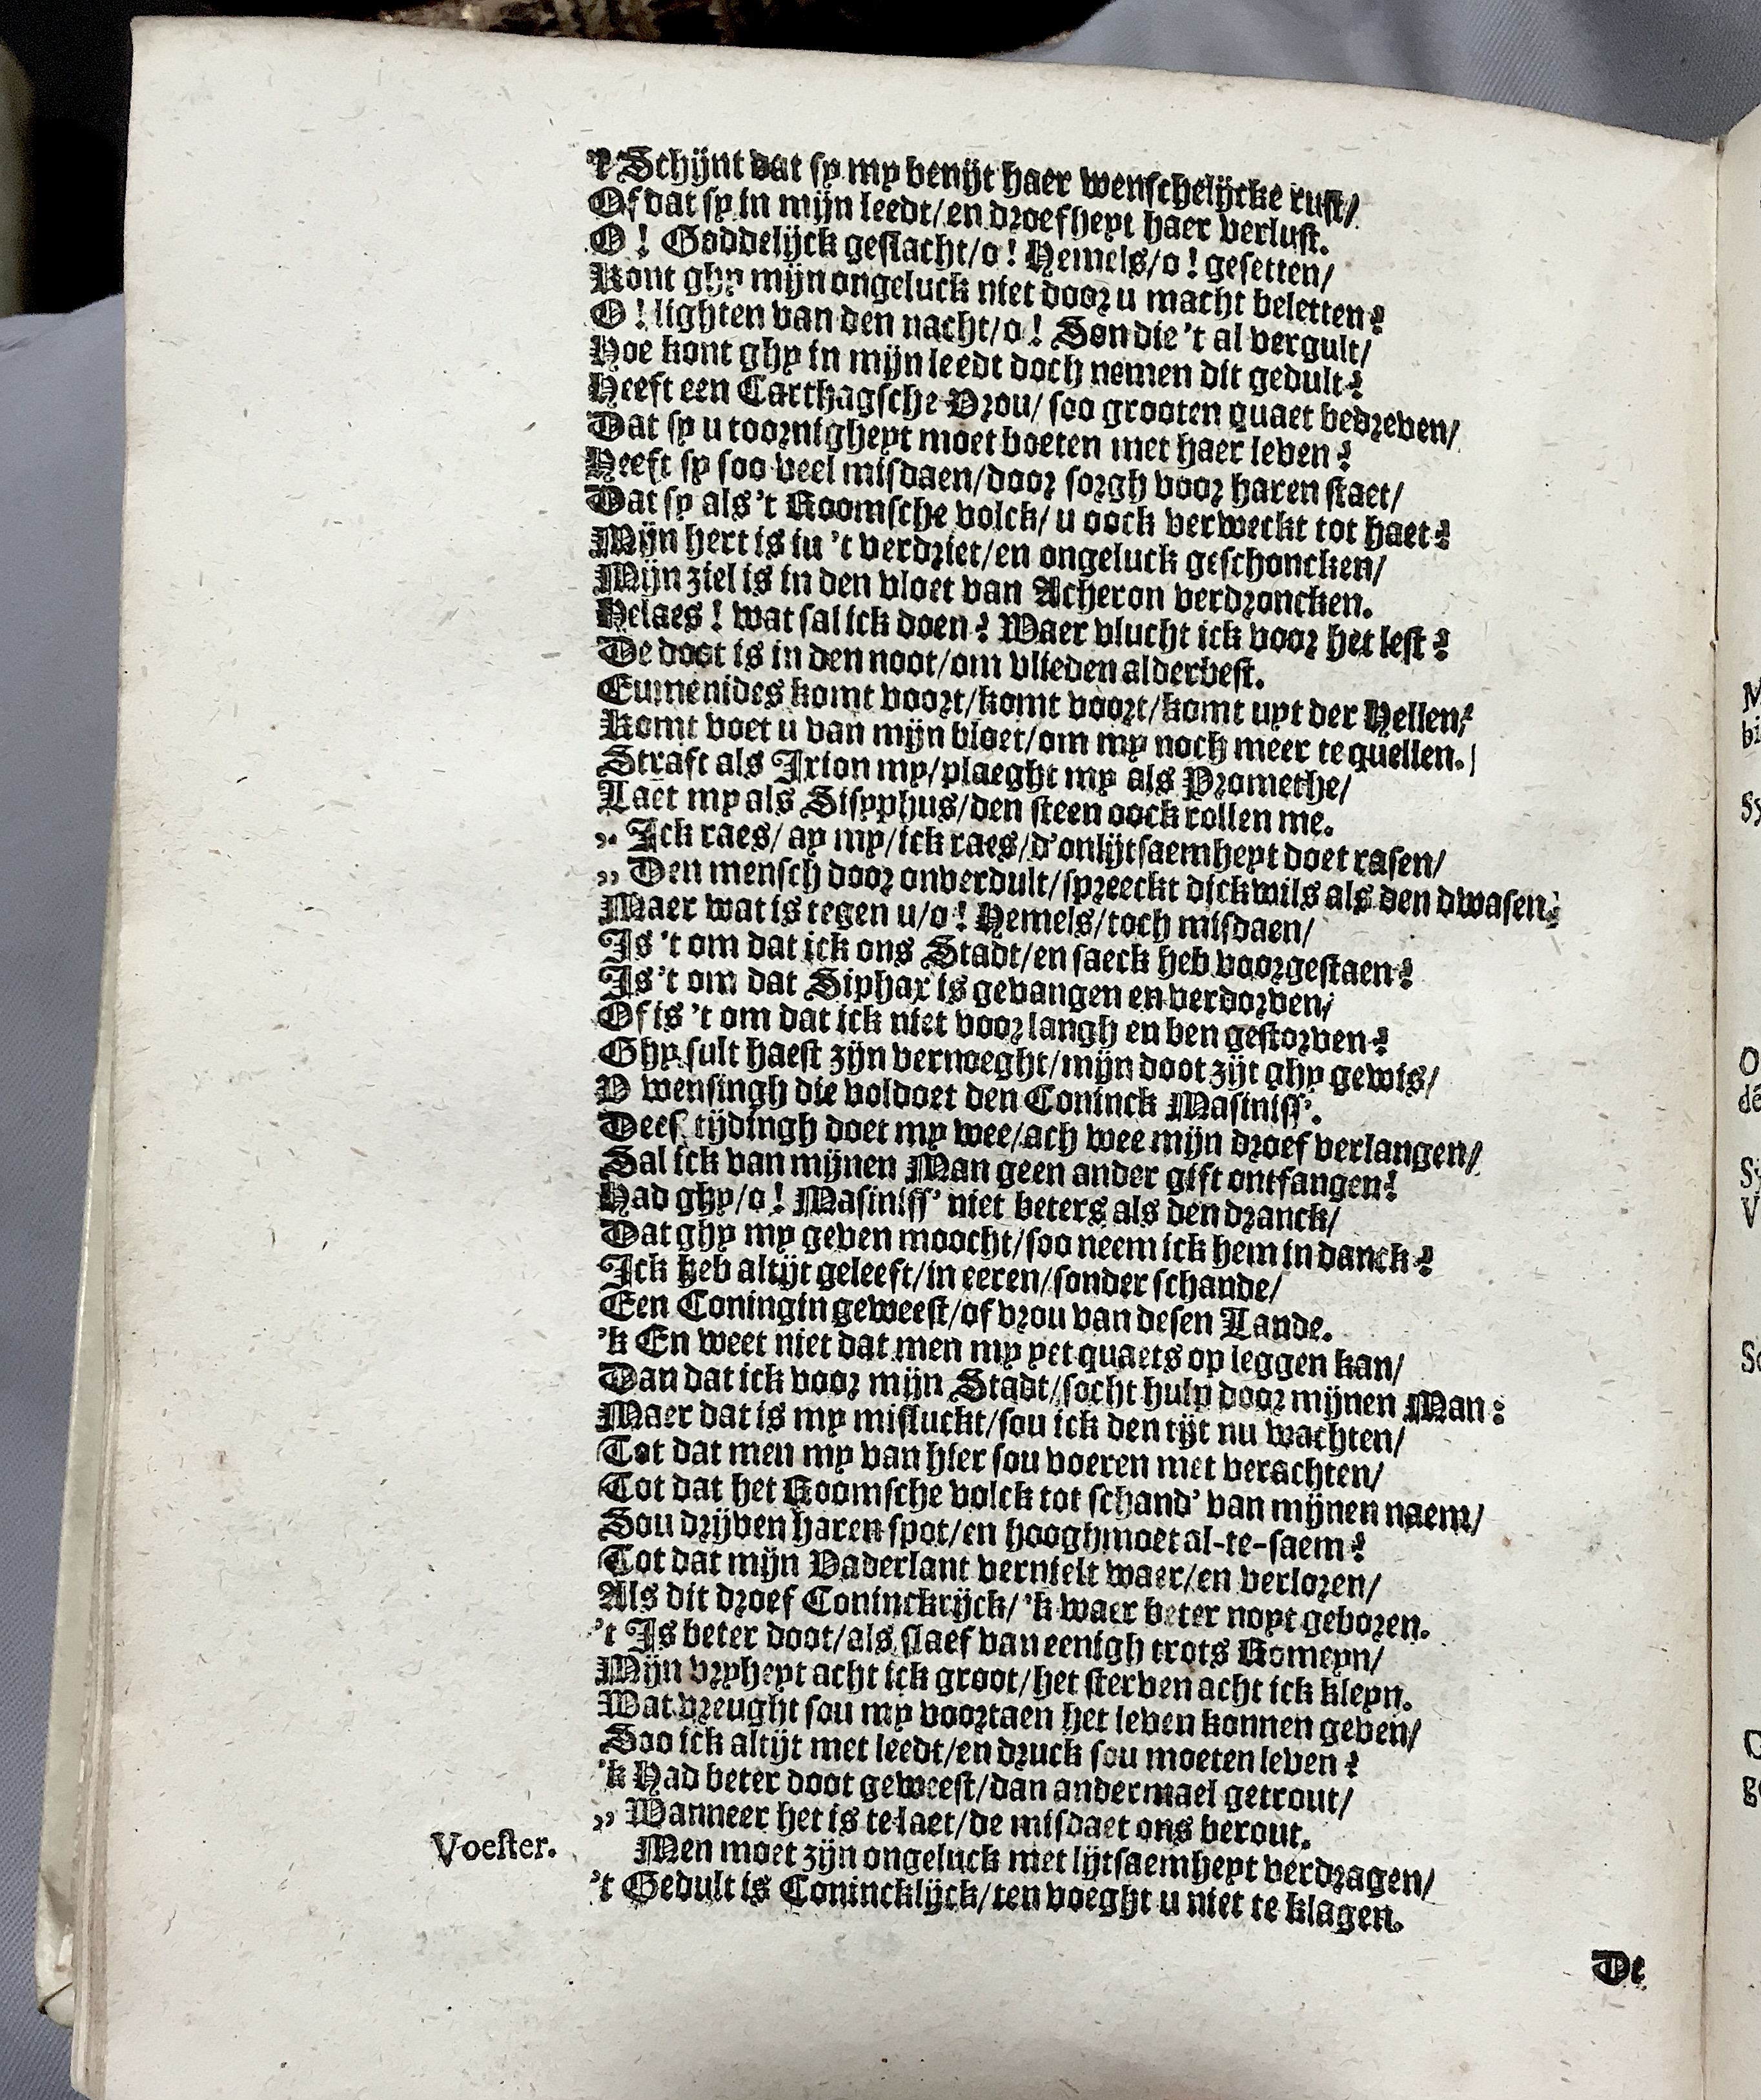 't Schijnt dat sy my benijt haer wenschelijcke rust/
Of dat sy in mijn leedt/en droefheyt haer verlust.
O! Goddelijck geslacht/o! Hemels/o! gesetten/
Kont ghy mijn ongeluck niet door u macht beletten?
O! lighten van den nacht/o! Son die 't al vergult/
Hoe kont ghy in mijn leedt doch nemen dit gedult?
Heeft een Carthagsche Vrou/ soo grooten quaet bedreven/
Dat sy u toornigheyt moet boeten met haer leven?
Heeft sy soo veel misdaen/door sorgh voor haren staet/
Dat sy als 't Roomsche volck/ u oock verweckt tot haet?
Mijn hert is iu 't verdriet/en ongeluck geschoncken/
Mijn ziel is in den vloet van Acheron verdroncken.
Helaes! wat sal ick doen? Waer vlucht ick voor het lest?
De doot is in den noot/om vlieden alderbest.
Eumenides komt voort/komt voort/komt uyt der Hellen/
Komt voet u van mijn bloet/om my noch meer te quellen.
Straft als Ixion my/plaeght my als Promethe/
Laet my als Sisyphus/den steen oock rollen me.
„ Ick raes/ ay my/ick raes/d'onlijtsaemheyt doet rasen/
„ Den mensch door onverdult/spreeckt dickwils als den dwasen:
Maer wat is tegen u/o! Hemels/toch misdaen/
Is 't om dat ick ons Stadt/en saeck heb voorgestaen?
Is 't om dat Siphax is gevangen en verdorven/
Of is 't om dat ick niet voor langh en ben gestorven?
Ghy sult haest zijn vernoeght/mijn doot zijt ghy gewis/
V wensingh die voldoet den Coninck Masiniss'.
Dees tijdingh doet my wee/ach wee mijn droef verlangen/
Sal ick van mijnen Man geen ander gift ontfangen?
Had ghy/o! Masiniss' niet beters als den dranck/
Dat ghy my geven moocht/soo neem ick hem in danck?
Ick heb altijt geleeft/in eeren/sonder schande/
Een Coningin geweest/of vrou van desen Lande.
'k En weet niet dat men my yet quaets op leggen kan/
Dan dat ick voor mijn Stadt/socht hulp door mijnen Man:
Maer dat is my misluckt/sou ick den tijt nu wachten/
Tot dat men my van hier sou voeren met verachten/
Tot dat het Roomsche volck tot schand' van mijnen naem/
Sou drijven haren spot/en hooghmoet al-te-saem?
Tot dat mijn Vaderlant vernielt waer/en verloren/
Als dit droef Coninckrijck/'k waer beter noyt geboren.
't Is beter doot/als slaef van eenigh trots Romeyn/
Mijn vryheyt acht ick groot/het sterven acht ick kleyn.
Wat vreught sou my voortaen het leven konnen geven/
Soo ick altijt met leedt/en druck sou moeten leven?
'k Had beter doot geweest/dan andermael getrout/
„ Wanneer het is te laet/de misdaet ons berout.
Voester. Men moet zijn ongeluck met lijtsaemheyt verdragen/
't Gedult is Conincklijck/ten voeght u niet te klagen.
De